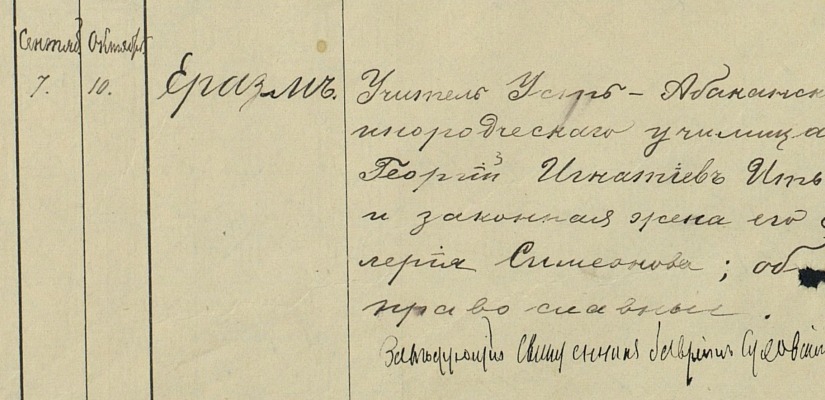 Сентяб Октября
7. 10. Еразмъ. Учитель Усть-Абаканск
инородческаго училища
Георгій Игнатіевъ Ить
и законная жена его
лерія Симеонова; об
православные.
Священникъ Гавріилъ